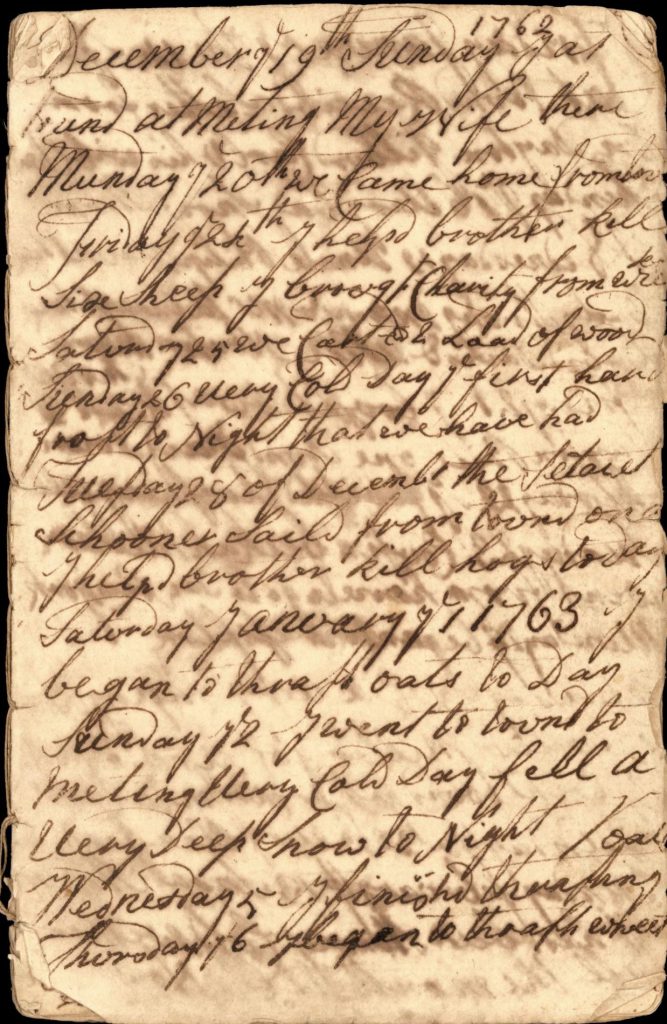 1762
December ye 19th Sunday I at
tound at Meting My Wife there
Munday ye 20th we Came home from
Friday ye 24th I helpd brother kill
Six Sheep I browgt Charity from
Saturday 25 we Carted 2 Load of wood
Sunday 26 very Cold Day ye first hard
frost to Night that we have had
Tuesday 28 of Decembr the
Schooner Saild from tound on a
I helpd brother kill hogs to day
Saturday January ye 1 1763 I
began to thrash oats to Day
Sunday ye 2 I went to tound to
Meting Very Cold Day fell a
Very Deep Snow to Night
Wednesday 5 I finishd thrashing
Thorsday ye 6 I began to thrash wheet